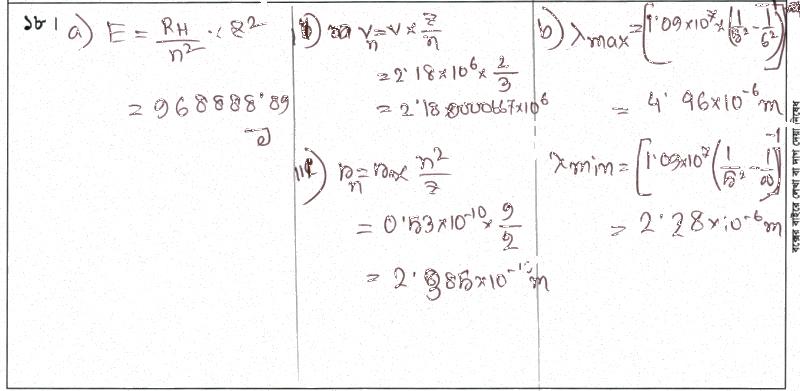 ১৮। a) E = RH/n² · Z²
= 968888.89 J
ii) vn = v × z/n
= 2.18×10⁶ × 2/3
iii) rn = r₀ × n²/z
= 0.53×10⁻¹⁰ × 9/2
= 2.385×10⁻¹⁰ m
b) λmax = [1.09×10⁷ × (1/5² - 1/6²)]
= 4.96×10⁻⁶ m
λmin = [1.09×10⁷ (1/5² - 1/∞)]⁻¹
= 2.28×10⁻⁶ m
বক্সের বাইরে লেখা বা দাগ দেয়া নিষেধ